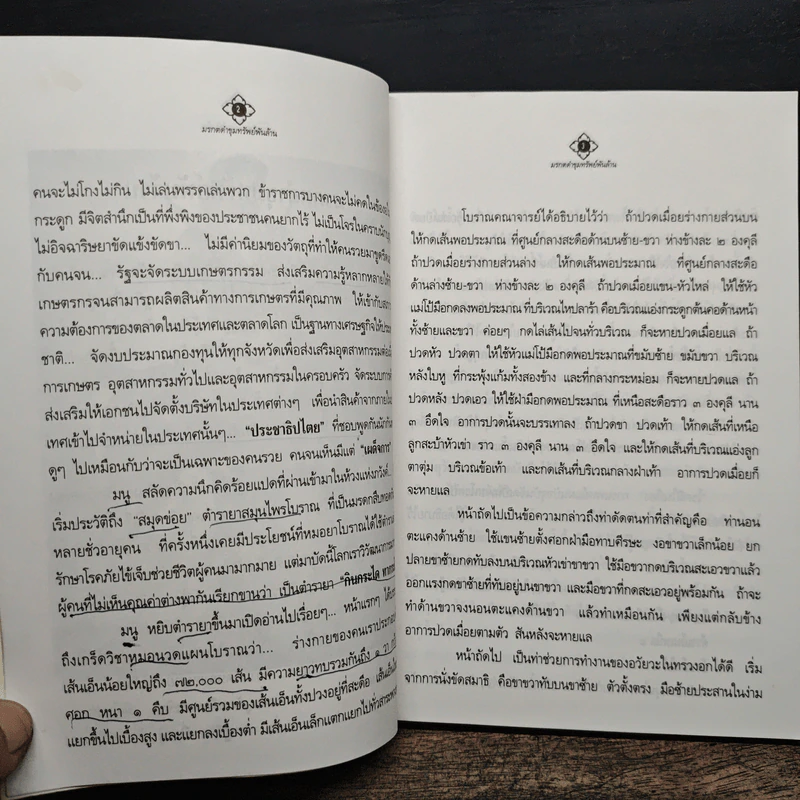 ๒
มรกตดำขุมทรัพย์พันล้าน
คนจะไม่โกงไม่กิน ไม่เล่นพรรคเล่นพวก ข้าราชการบางคนจะไม่คดในข้องอใน
กระดูก มีจิตสำนึกเป็นที่พึ่งพิงของประชาชนคนยากไร้ ไม่เป็นโจรในคราบ
ไม่อิจฉาริษยาขัดแข้งขัดขา... ไม่มีค่านิยมของวัตถุที่ทำให้คนรวยมาขูดรีด
กับคนจน... รัฐจะจัดระบบเกษตรกรรม ส่งเสริมความรู้หลากหลายให้
เกษตรกรจนสามารถผลิตสินค้าทางการเกษตรที่มีคุณภาพ ให้เข้ากับ
ความต้องการของตลาดในประเทศและตลาดโลก เป็นฐานทางเศรษฐกิจให้
ชาติ... จัดงบประมาณกองทุนให้ทุกจังหวัดเพื่อส่งเสริมอุตสาหกรรม
การเกษตร อุตสาหกรรมทั่วไปและอุตสาหกรรมในครอบครัว จัดระบบการ
ส่งเสริมให้เอกชนไปจัดตั้งบริษัทในประเทศต่างๆ เพื่อนำสินค้าจาก
เทศเข้าไปจำหน่ายในประเทศนั้นๆ... “ประชาธิปไตย” ที่ชอบพูดกันนัก
ดูๆ ไปเหมือนกับว่าจะเป็นเฉพาะของคนรวย คนจนเห็นมีแต่ “เผด็จการ”
มนู สลัดความนึกคิดร้อยแปดที่ผ่านเข้ามาในห้วงแห่งภวังค์...
เริ่มประวัติถึง “สมุดข่อย” ตำรายาสมุนไพรโบราณ ที่เป็นมรดกสืบทอด
หลายชั่วอายุคน ที่ครั้งหนึ่งเคยมีประโยชน์ที่หมอยาโบราณได้ใช้
รักษาโรคภัยไข้เจ็บช่วยชีวิตผู้คนมามากมาย แต่มาบัดนี้โลกเราวิวัฒนาการ
ผู้คนที่ไม่เห็นคุณค่าต่างพากันเรียกขานว่า เป็นตำรายา “กินกระได
มนู หยิบตำรายาขึ้นมาเปิดอ่านไปเรื่อยๆ... หน้าแรกๆ
ถึงเกร็ดวิชาหมอนวดแผนโบราณว่า... ร่างกายของคนเราประกอบ
เส้นเอ็นน้อยใหญ่ถึง ๗๒,๐๐๐ เส้น มีความยาวทบรวมกันถึง ๑ วา
ศอก หนา ๑ คืบ มีศูนย์รวมของเส้นเอ็นทั้งปวงอยู่ที่สะดือ เส้นเอ็น
แยกขึ้นไปเบื้องสูง และแยกลงเบื้องต่ำ มีเส้นเอ็นเล็กแตกแยกไปทั่ว
๓
มรกตดำขุมทรัพย์พันล้าน
โบราณคณาจารย์ได้อธิบายไว้ว่า ถ้าปวดเมื่อยร่างกายส่วนบน
ให้กดเส้นพอประมาณ ที่ศูนย์กลางสะดือด้านบนซ้าย-ขวา ห่างข้างละ ๒ องคุลี
ถ้าปวดเมื่อยร่างกายส่วนล่าง ให้กดเส้นพอประมาณ ที่ศูนย์กลางสะดือ
ด้านล่างซ้าย-ขวา ห่างข้างละ ๒ องคุลี ถ้าปวดเมื่อยแขน-หัวไหล่ ให้ใช้หัว
แม่โป้มือกดลงพอประมาณ ที่บริเวณไหปลาร้า คือบริเวณแอ่งกระดูกต้นคอด้านหน้า
ทั้งซ้ายและขวา ค่อยๆ กดไล่เส้นไปจนทั่วบริเวณ ก็จะหายปวดเมื่อยแล ถ้า
ปวดหัว ปวดตา ให้ใช้หัวแม่โป้มือกดพอประมาณที่ขมับซ้าย ขมับขวา บริเวณ
หลังใบหู ที่กระพุ้งแก้มทั้งสองข้าง และที่กลางกระหม่อม ก็จะหายปวดแล ถ้า
ปวดหลัง ปวดเอว ให้ใช้ฝ่ามือกดพอประมาณ ที่เหนือสะดือราว ๓ องคุลี นาน
๓ อึดใจ อาการปวดนั้นจะบรรเทาลง ถ้าปวดขา ปวดเท้า ให้กดเส้นที่เหนือ
ลูกสะบ้าหัวเข่า ราว ๓ องคุลี นาน ๓ อึดใจ และให้กดเส้นที่บริเวณแอ่งลูก
ตาตุ่ม บริเวณข้อเท้า และกดเส้นที่บริเวณกลางฝ่าเท้า อาการปวดเมื่อยก็
จะหายแล
หน้าถัดไปเป็นข้อความกล่าวถึงท่าดัดตนท่าที่สำคัญคือ ท่านอน
ตะแคงด้านซ้าย ใช้แขนซ้ายตั้งศอกฝ่ามือทาบศีรษะ งอขาขวาเล็กน้อย ยก
ปลายขาซ้ายกดทับลงบนบริเวณหัวเข่าขาขวา ใช้มือขวากดบริเวณสะเอวขวาแล้ว
ออกแรงกดขาซ้ายที่ทับอยู่บนขาขวา และมือขวาที่กดสะเอวอยู่พร้อมกัน ถ้าจะ
ทำด้านขวาจงนอนตะแคงด้านขวา แล้วทำเหมือนกัน เพียงแต่กลับข้าง
อาการปวดเมื่อยตามตัว สันหลังจะหายแล
หน้าถัดไป เป็นท่าช่วยการทำงานของอวัยวะในทรวงอกได้ดี เริ่ม
จากการนั่งขัดสมาธิ คือขาขวาทับบนขาซ้าย ตัวตั้งตรง มือซ้ายประสานในง่าม